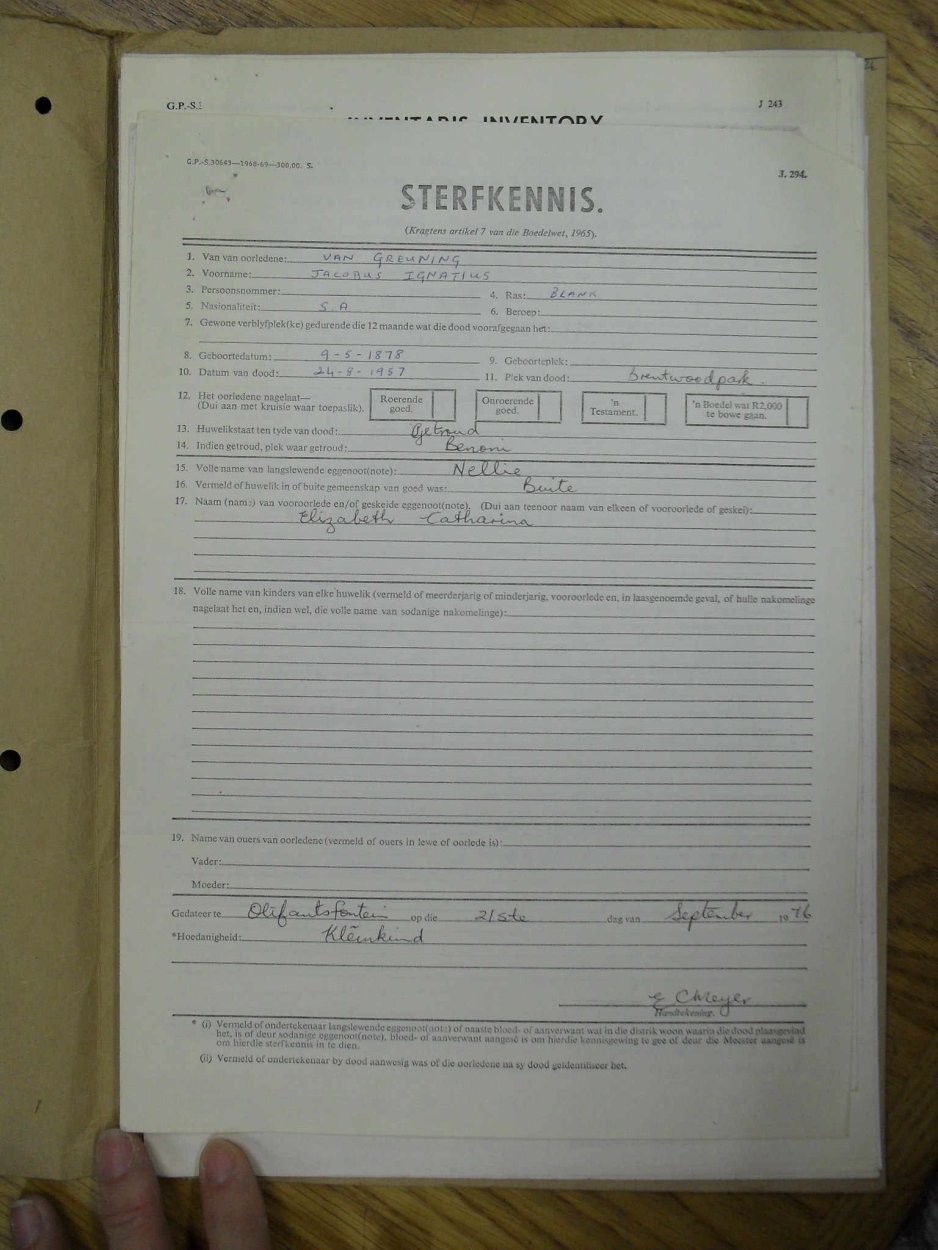 G.P.-S.
J 243
INVENTARIS INVENTORY
G.P.-S.30643—1968-69—300,00. S.
J. 294.
STERFKENNIS.
(Kragtens artikel 7 van die Boedelwet, 1965).
1. Van van oorledene: VAN GREUNING
2. Voorname: JACOBUS IGNATIUS
3. Persoonsnommer:
4. Ras: BLANK
5. Nasionaliteit: S.A
6. Beroep:
7. Gewone verblyfplek(ke) gedurende die 12 maande wat die dood voorafgegaan het:
8. Geboortedatum: 9-5-1878
9. Geboorteplek:
10. Datum van dood: 24-8-1957
11. Plek van dood: Brentwoodpark.
12. Het oorledene nagelaat—
(Dui aan met kruisie waar toepaslik).
Roerende
goed.
Onroerende
goed.
'n
Testament.
'n Boedel wat R2,000
te bowe gaan.
13. Huwelikstaat ten tyde van dood: Getroud
14. Indien getroud, plek waar getroud: Benoni
15. Volle name van langslewende eggenoot(note): Nellie
16. Vermeld of huwelik in of buite gemeenskap van goed was: Buite
17. Naam (name) van vooroorlede en/of geskeide eggenoot(note). (Dui aan teenoor naam van elkeen of vooroorlede of geskei):
Elizabeth Catharina
18. Volle name van kinders van elke huwelik (vermeld of meerderjarig of minderjarig, vooroorlede en, in laasgenoemde geval, of hulle nakomelinge
nagelaat het en, indien wel, die volle name van sodanige nakomelinge):
19. Name van ouers van oorledene (vermeld of ouers in lewe of oorlede is):
Vader:
Moeder:
Gedateer te Olifantsfontein op die 21ste dag van September 1976
*Hoedanigheid: Kleinkind
E C Meyer
Handtekening.
* (i) Vermeld of ondertekenaar langslewende eggenoot(note) of naaste bloed- of aanverwant wat in die distrik woon waarin die dood plaasgevind
het, is of deur sodanige eggenoot(note), bloed- of aanverwant aangesê is om hierdie kennisgewing te gee of deur die Meester aangesê is
om hierdie sterfkennis in te dien.
(ii) Vermeld of ondertekenaar by dood aanwesig was of die oorledene na sy dood geïdentifiseer het.